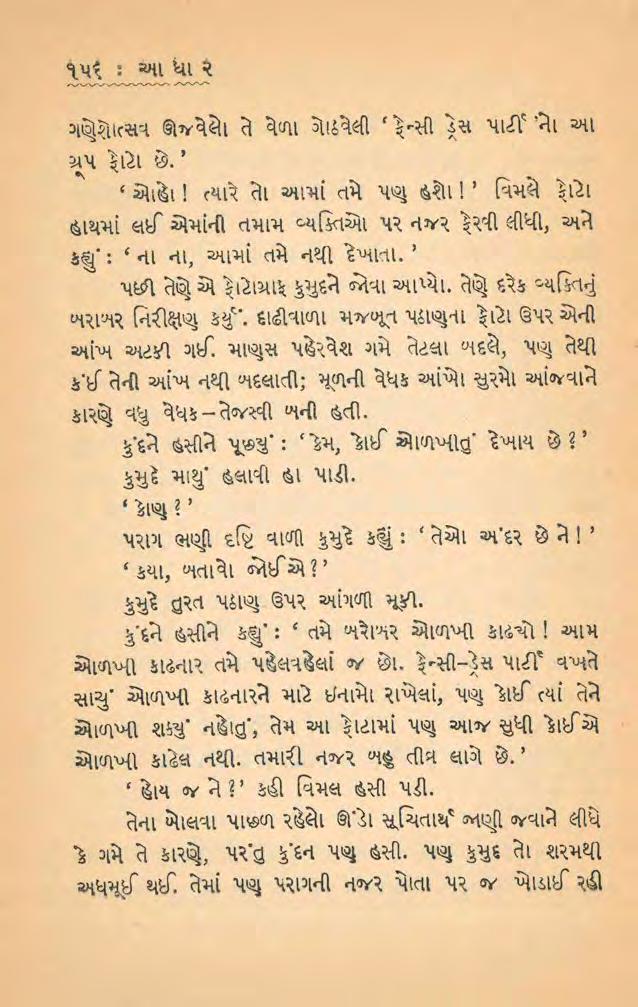 ૧૫૬ : આ ધા ર
ગણેશોત્સવ ઊજવેલો તે વેળા ગોઠવેલી ‘ ફેન્સી ડ્રેસ પાર્ટી ’નો આ
ગ્રૂપ ફોટો છે. ’
‘ ઓહો ! ત્યારે તો આમાં તમે પણ હશો ! ’ વિમલે ફોટો
હાથમાં લઈ એમાંની તમામ વ્યક્તિઓ પર નજર ફેરવી લીધી, અને
કહ્યું : ‘ ના ના, આમાં તમે નથી દેખાતા. ’
પછી તેણે એ ફોટોગ્રાફ કુમુદને જોવા આપ્યો. તેણે દરેક વ્યક્તિનું
બરાબર નિરીક્ષણ કર્યું. દાઢીવાળા મજબૂત પઠાણના ફોટો ઉપર એની
આંખ અટકી ગઈ. માણસ પહેરવેશ ગમે તેટલા બદલે, પણ તેથી
કંઈ તેની આંખ નથી બદલાતી; મૂળની વેધક આંખો સુરમો આંજવાને
કારણે વધુ વેધક – તેજસ્વી બની હતી.
કુંદને હસીને પૂછ્યું : ‘ કેમ, કોઈ ઓળખીતું દેખાય છે ? ’
કુમુદે માથું હલાવી હા પાડી.
‘ કોણ ? ’
પરાગ ભણી દષ્ટિ વાળી કુમુદે કહ્યું : ‘ તેઓ અંદર છે ને ! ’
‘ કયા, બતાવો જોઈએ ? ’
કુમુદે તુરત પઠાણ ઉપર આંગળી મૂકી.
કુંદને હસીને કહ્યું : ‘ તમે બરોબર ઓળખી કાઢ્યો ! આમ
ઓળખી કાઢનાર તમે પહેલવહેલાં જ છો. ફેન્સી–ડ્રેસ પાર્ટી વખતે
સાચું ઓળખી કાઢનારને માટે ઇનામો રાખેલાં, પણ કોઈ ત્યાં તેને
ઓળખી શક્યું નહોતું, તેમ આ ફોટામાં પણ આજ સુધી કોઈએ
ઓળખી કાઢેલ નથી. તમારી નજર બહુ તીવ્ર લાગે છે. ’
‘ હોય જ ને ? ’ કહી વિમલ હસી પડી.
તેના બોલવા પાછળ રહેલો ઊંડો સૂચિતાર્થ જાણી જવાને લીધે
કે ગમે તે કારણે, પરંતુ કુંદન પણ હસી. પણ કુમુદ તો શરમથી
અધમૂઈ થઈ. તેમાં પણ પરાગની નજર પોતા પર જ ખોડાઈ રહી